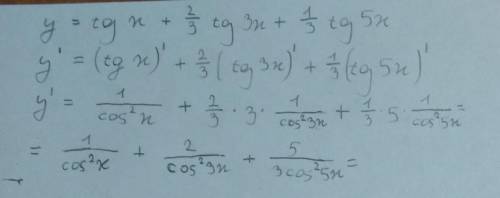 y = tg x + 2/3 tg 3x + 1/3 tg 5x
y' = (tg x)' + 2/3 (tg 3x)' + 1/3 (tg 5x)'
y' = 1/cos²x + 2/3 · 3 · 1/cos²3x + 1/3 · 5 · 1/cos²5x =
= 1/cos²x + 2/cos²3x + 5/3cos²5x =